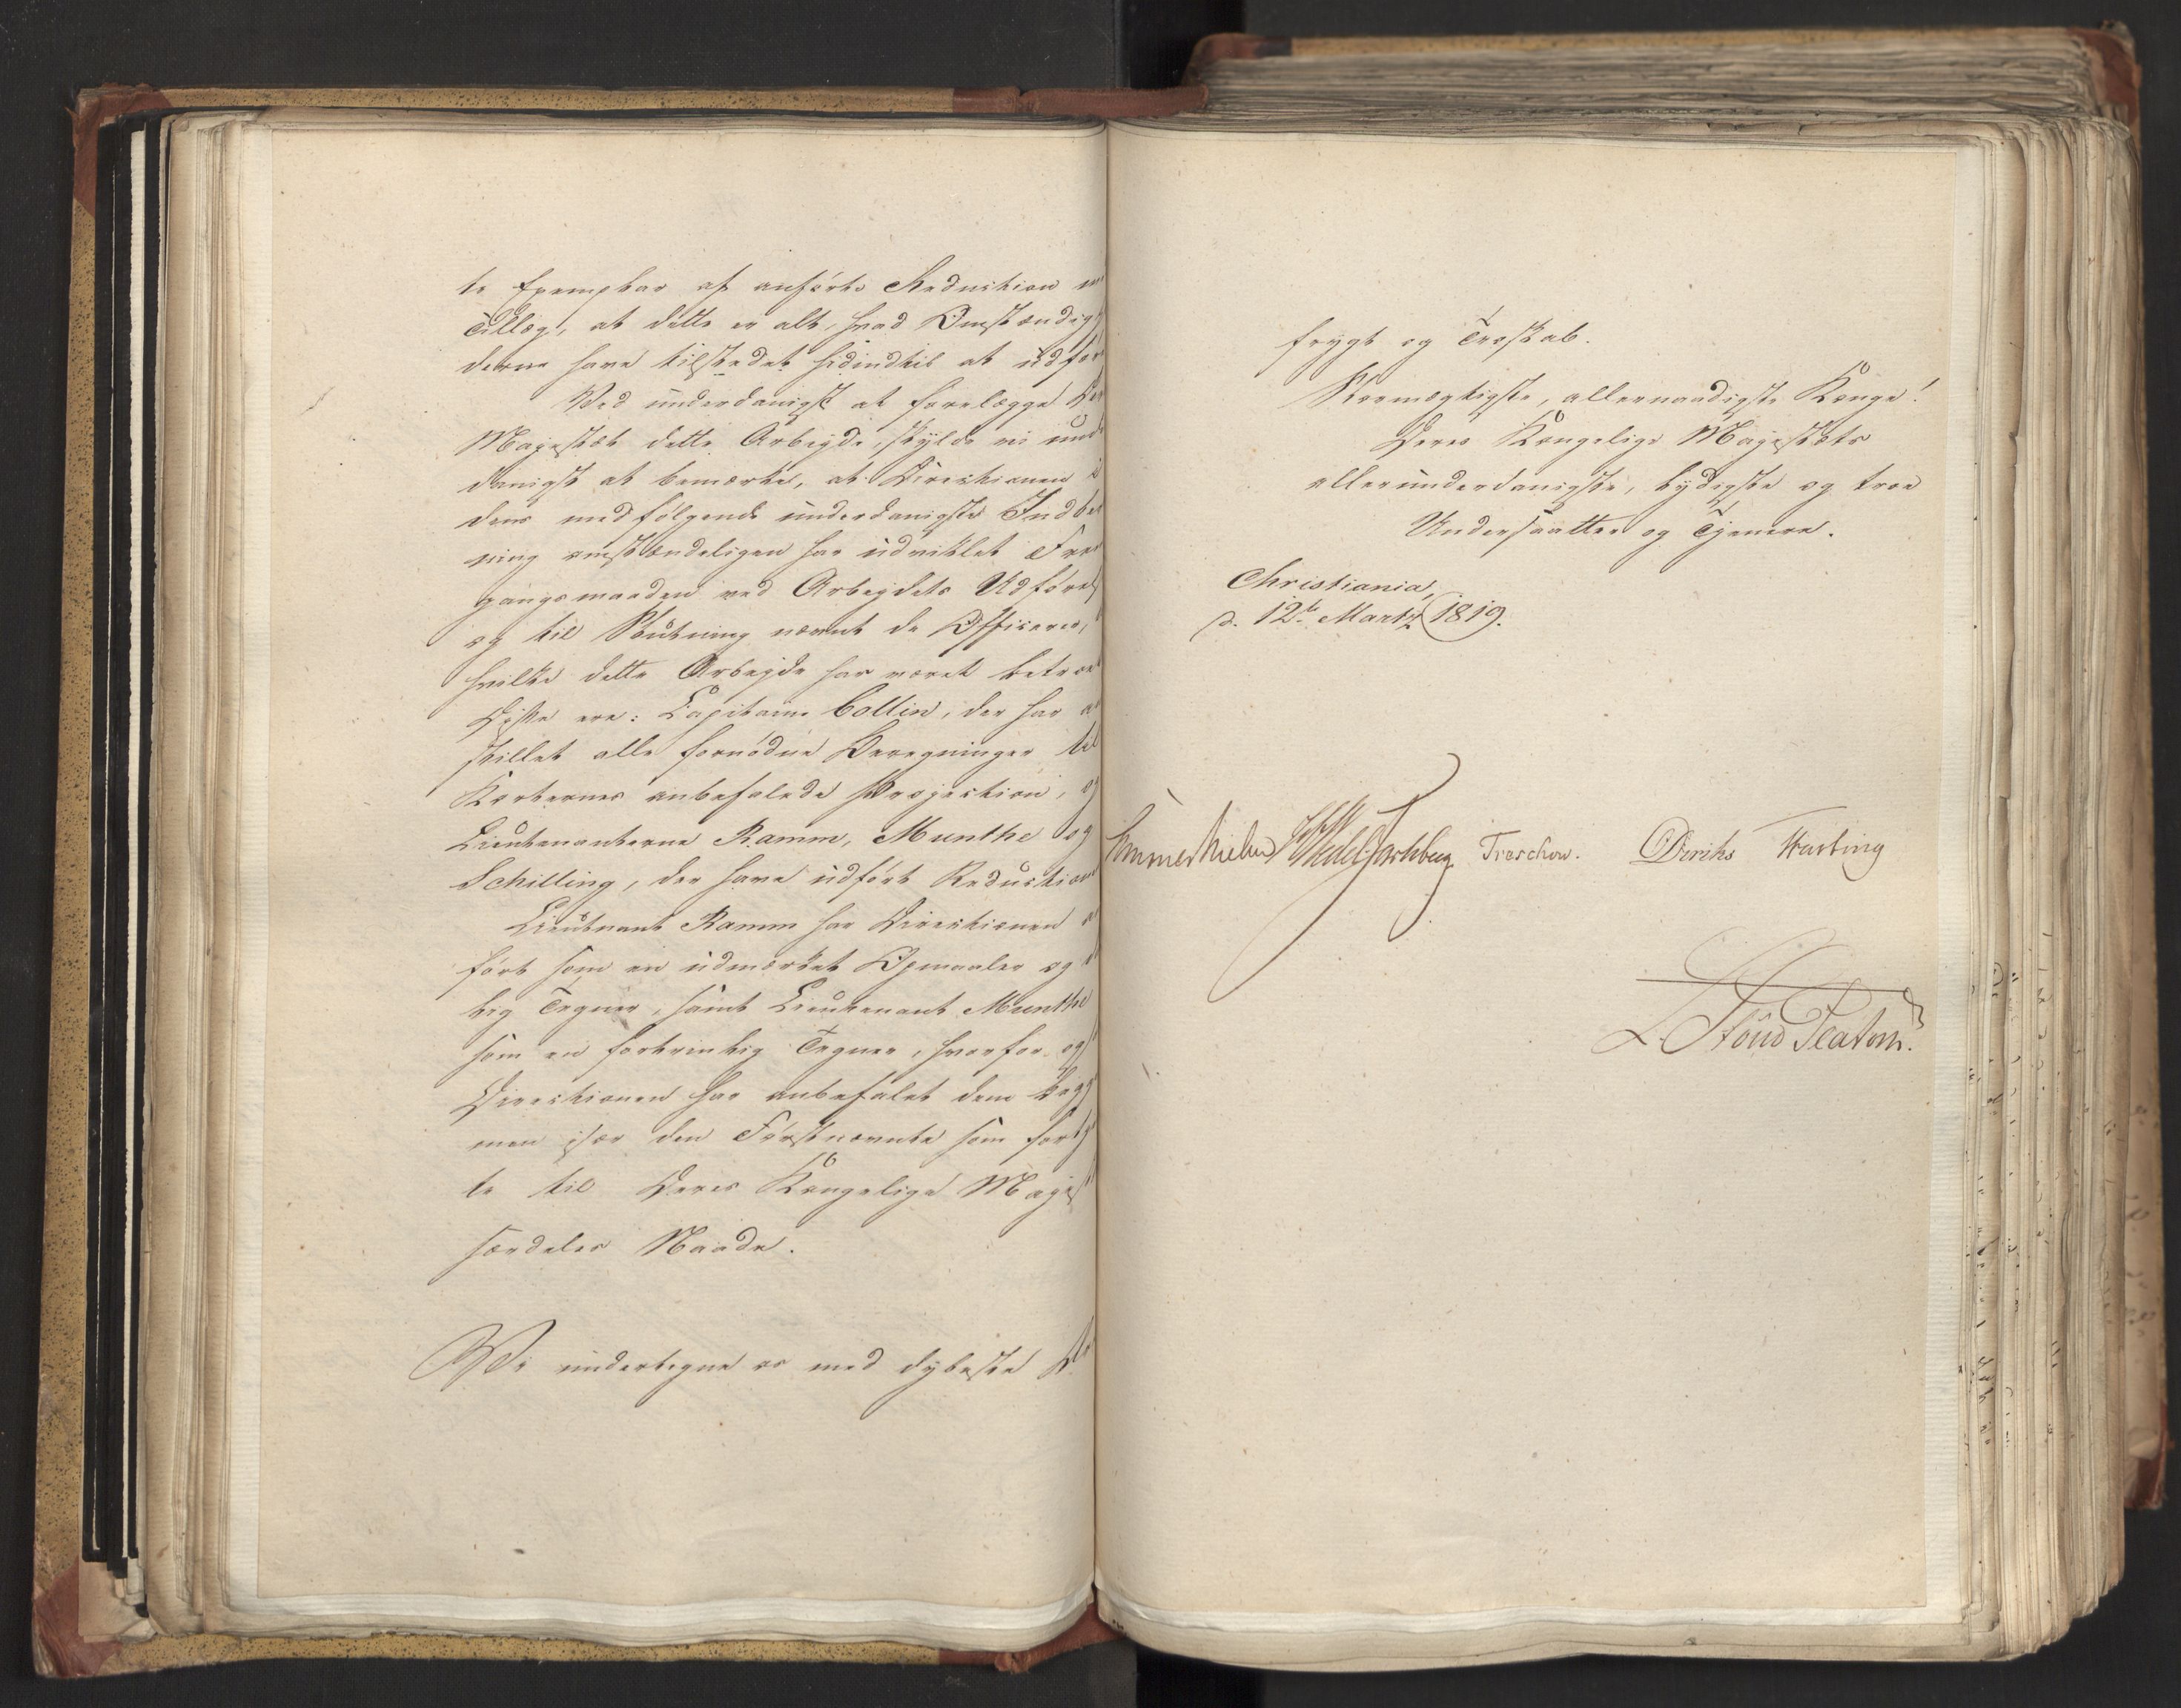 te Exemplar af anførte Reduction
Tillæg, at dette er alt, hvad Omstændig
derne have tilstedet hidindtil at udfø
Ved underdanigst at forelægge
Majestæt dette Arbejde, skylde vi und
danigst at bemærke, at Directionen i
dens medfølgende underdanigste Indbe
ning omstændeligen har udviklet Frem
gangsmaaden ved Arbejdets Udførels
og til Slutning nævnt de Officerer,
hvilke dette Arbejde har været betroet
Disse ere: Capitaine Collin, der har
stillet alle fornødne Beregninger til
Karternes anbefalede Projection, og
Lieutenanterne Ramm, Munthe og
Schilling, der have udført Reduction
Lieutnant Ramm har Directionen
ført som en udmærket Opmaaler og
tig Tegner, samt Lieutenant Munthe
som en fortrinlig Tegner, hvorfor og
Directionen har anbefalet dem begge
men især den Førstnævnte som fortj
te til Deres Kongelige Majest
særdeles Naade.
Vi undertegne os med dybeste
frygt og Troskab.
Stormægtigste, allernaadigste Konge!
Deres Kongelige Majestæts
allerunderdanigste, lydigste og troe
Undersaatter og Tjenere.
Christiania,
d. 12te Martz 1819.
Sommerhielm Wedel Jarlsberg Treschow. Diriks Fasting
L. Stoud Platou.